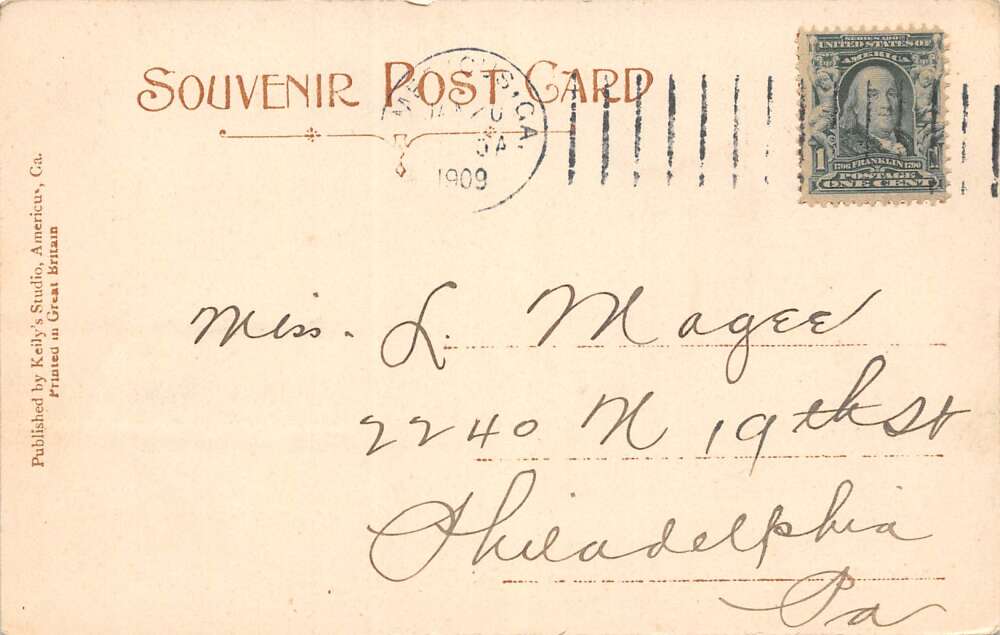 SOUVENIR POST CARD
AMERICUS, GA.
1909
SERIES 1902
UNITED STATES OF
AMERICA
1
1706 FRANKLIN 1790
POSTAGE
ONE CENT
Published by Kelly's Studio, Americus, Ga.
Printed in Great Britain
Miss. L. Magee
2240 N 19th St
Philadelphia
Pa